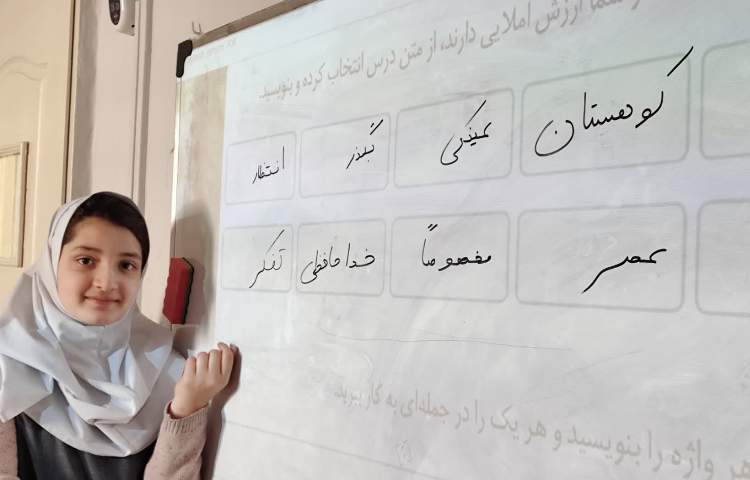 شما ارزش املایی دارند، از متن درس انتخاب کرده و بنویسید.
کوهستان غمگینی بگذر انتظار
عصر مخصوصاً خداحافظی تفکر
هر واژه را بنویسید و هر یک را در جمله‌ای به کار ببرید.